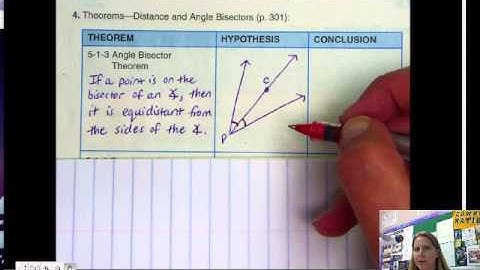 4. Theorems—Distance and Angle Bisectors (p. 301):
THEOREM HYPOTHESIS CONCLUSION
5-1-3 Angle Bisector
Theorem
If a point is on the
bisector of an ∡, then
it is equidistant from
the sides of the ∡.
C
P